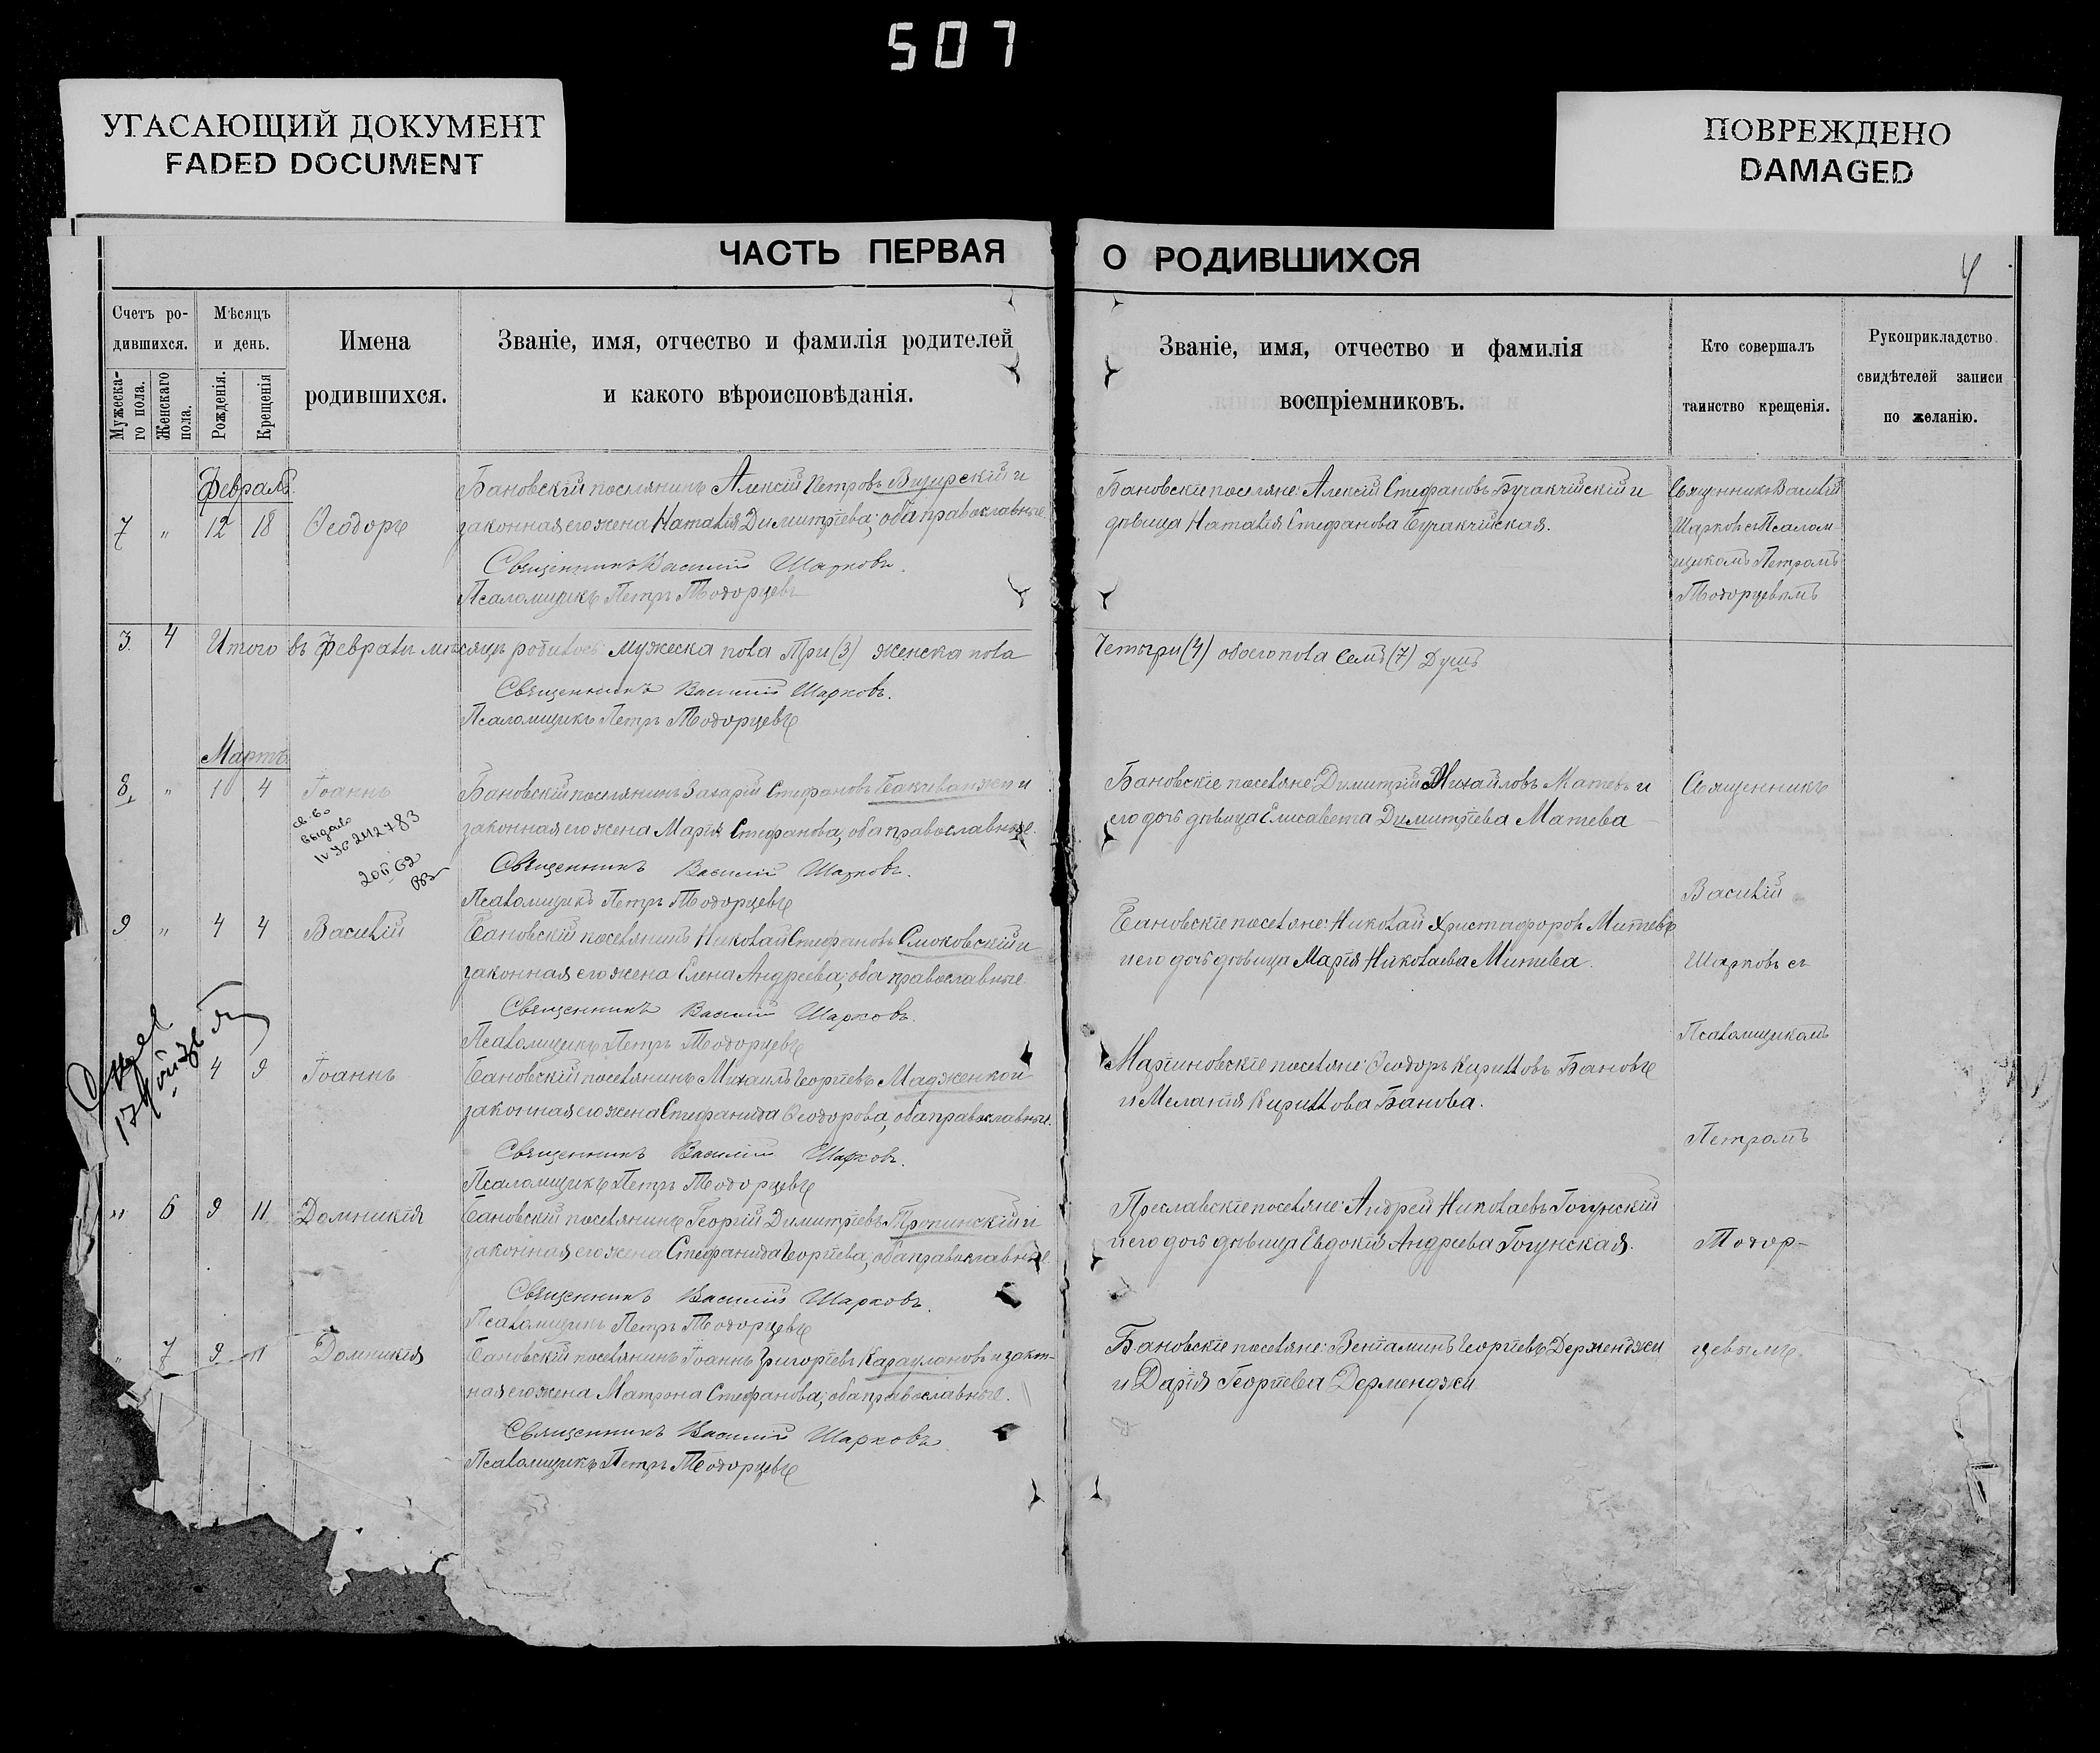 507
УГАСАЮЩИЙ ДОКУМЕНТ
FADED DOCUMENT
ПОВРЕЖДЕНО
DAMAGED
ЧАСТЬ ПЕРВАЯ
О РОДИВШИХСЯ
4
Счетъ ро-
дившихся.
Мужеска-
го пола.
Женскаго
пола.
Мѣсяцъ
и день.
Рожденія.
Крещенія
Имена
родившихся.
Званіе, имя, отчество и фамилія родителей
и какого вѣроисповѣданія.
Званіе, имя, отчество и фамилія
воспріемниковъ.
Кто совершалъ
таинство крещенія.
Рукоприкладство
свидѣтелей записи
по желанію.
Февраль
7 " 12 18 Ѳеодоръ
Бановскій поселянинъ Алексій Петровъ Визирскій и
законная его жена Наталія Димитріева; оба православные
Священникъ Василій Шарковъ.
Псаломщикъ Петръ Тодорцевъ
Бановскіе поселяне: Алексій Стефановъ Бучакчійскій и
дѣвица Наталія Стефанова Бучакчійская.
Священникъ Василій
Шарковъ съ Псалом-
щикомъ Петромъ
Тодорцевымъ
3. 4 Итого въ Февралѣ мѣсяцѣ родилось: мужеска пола Три (3) женска пола
Четыри (4) обоего пола Семь (7) Душъ
Священникъ Василій Шарковъ.
Псаломщикъ Петръ Тодорцевъ
Мартъ
8 " 1 4 Іоаннъ
св-во
выдано
IV ЯЬ 2112783
Бановскій поселянинъ Захарій Стефановъ Бакчеванжи и
законная его жена Марія Стефанова, оба православные.
Священникъ Василій Шарковъ.
Псаломщикъ Петръ Тодорцевъ
Бановскіе поселяне: Димитрій Михайловъ Матевъ и
его дочь дѣвица Елисавета Димитріева Матева
Священникъ
Василій
9 " 4 4 Василій
Бановскій поселянинъ Николай Стефановъ Смоковскій и
законная его жена Елена Андреева; оба православные
Священникъ Василій Шарковъ.
Псаломщикъ Петръ Тодорцевъ
Бановскіе поселяне: Николай Христофоровъ Митевъ
и его дочь дѣвица Марія Николаева Митева.
Шарковъ съ
Псаломщикомъ
4 9 Іоаннъ
Бановскій поселянинъ Михаилъ Георгіевъ Мадженкои
законная его жена Стефанида Ѳеодорова, оба православные.
Священникъ Василій Шарковъ.
Псаломщикъ Петръ Тодорцевъ
Маріиновскіе поселяне: Ѳеодоръ Кирилловъ Бановъ
и Меланія Кириллова Банова.
Петромъ
" 6 9 11 Домникія
Бановскій поселянинъ Георгій Димитріевъ Тропинскій и
законная его жена Стефанида Георгіева, оба православные
Священникъ Василій Шарковъ.
Псаломщикъ Петръ Тодорцевъ
Преславскіе поселяне: Андрей Николаевъ Гогунскій
и его дочь дѣвица Евдокія Андреева Гогунская.
Тодор-
" 7 9 11 Домникія
Бановскій поселянинъ Іоаннъ Григоріевъ Караулановъ и закон-
ная его жена Матрона Стефанова; оба православные.
Священникъ Василій Шарковъ
Псаломщикъ Петръ Тодорцевъ
Бановскіе поселяне: Веніаминъ Георгіевъ Дерменджи
и Дарія Георгіева Дерменджи
цевымъ.